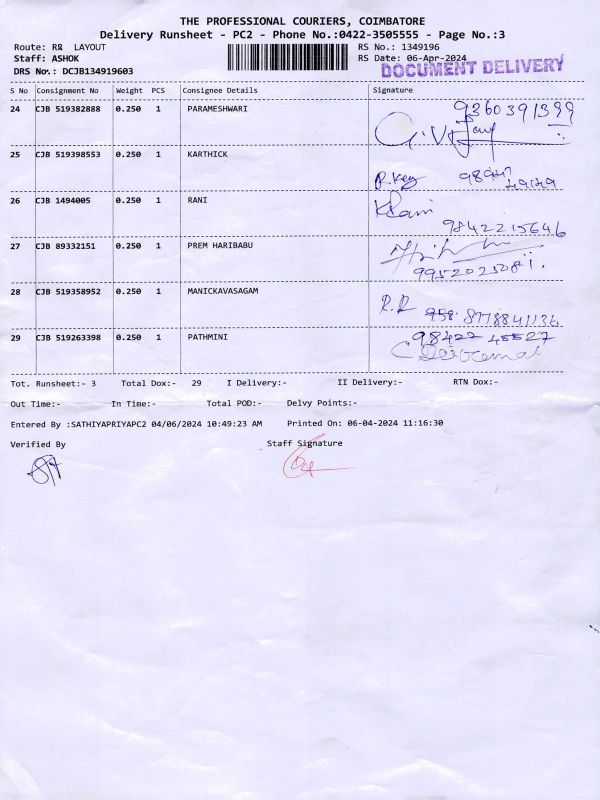 THE PROFESSIONAL COURIERS, COIMBATORE
Delivery Runsheet - PC2 - Phone No.:0422-3505555 - Page No.:3
Route: RR LAYOUT RS No.: 1349196
Staff: ASHOK RS Date: 06-Apr-2024
DOCUMENT DELIVERY
DRS No.: DCJB134919603
S No Consignment No Weight PCS Consignee Details Signature
24 CJB 519382888 0.250 1 PARAMESHWARI 9360391399
25 CJB 519398553 0.250 1 KARTHICK
26 CJB 1494005 0.250 1 RANI
9842215646
27 CJB 89332151 0.250 1 PREM HARIBABU
9952025081
28 CJB 519358952 0.250 1 MANICKAVASAGAM
R.R 8778841136
29 CJB 519263398 0.250 1 PATHMINI 98422 45527
Tot. Runsheet:- 3 Total Dox:- 29 I Delivery:- II Delivery:- RTN Dox:-
Out Time:- In Time:- Total POD:- Delvy Points:-
Entered By :SATHIYAPRIYAPC2 04/06/2024 10:49:23 AM Printed On: 06-04-2024 11:16:30
Verified By Staff Signature